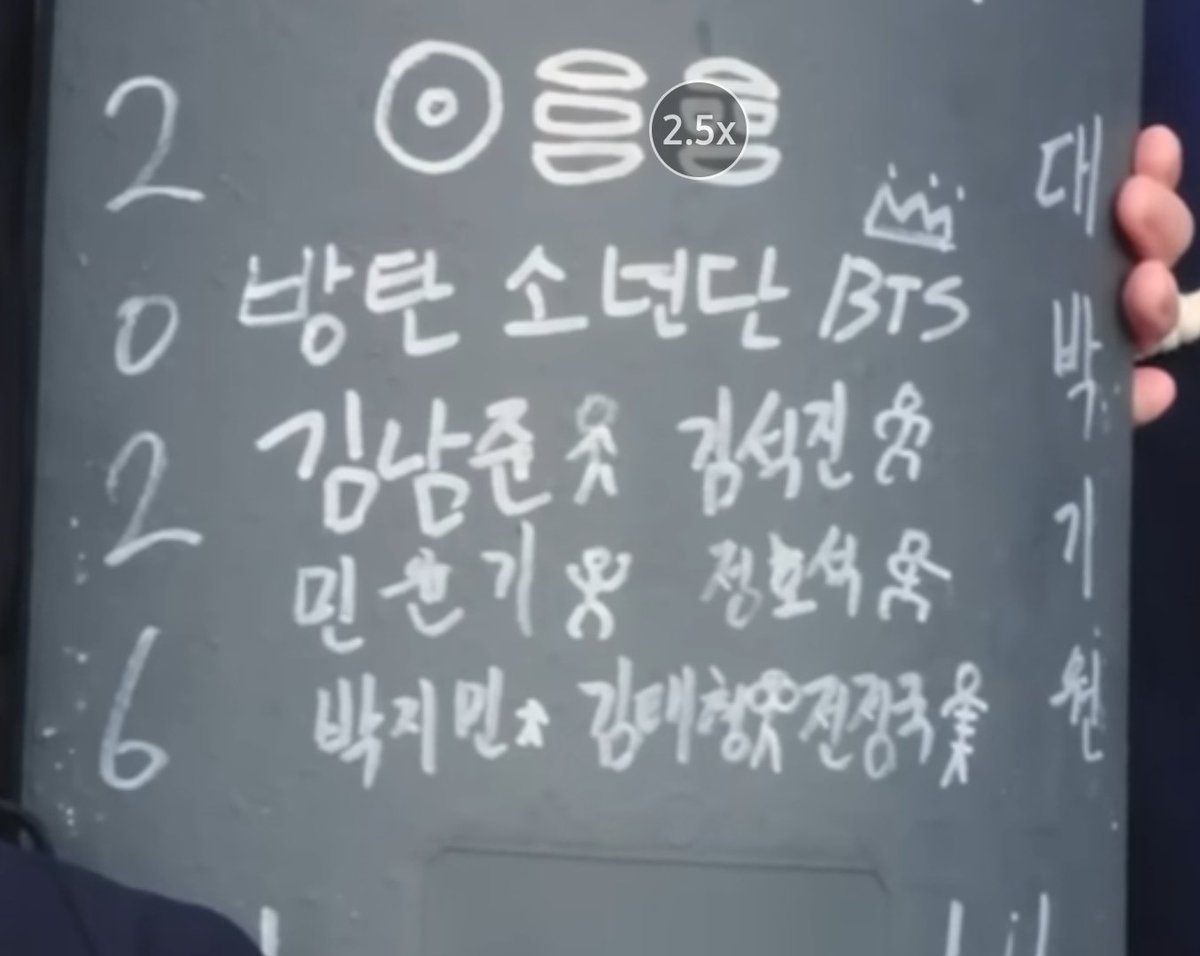 2026
2.5x
방탄 소년단 BTS
김남준 김석진
민윤기 정호석
박지민 김태형 전정국
대박기원